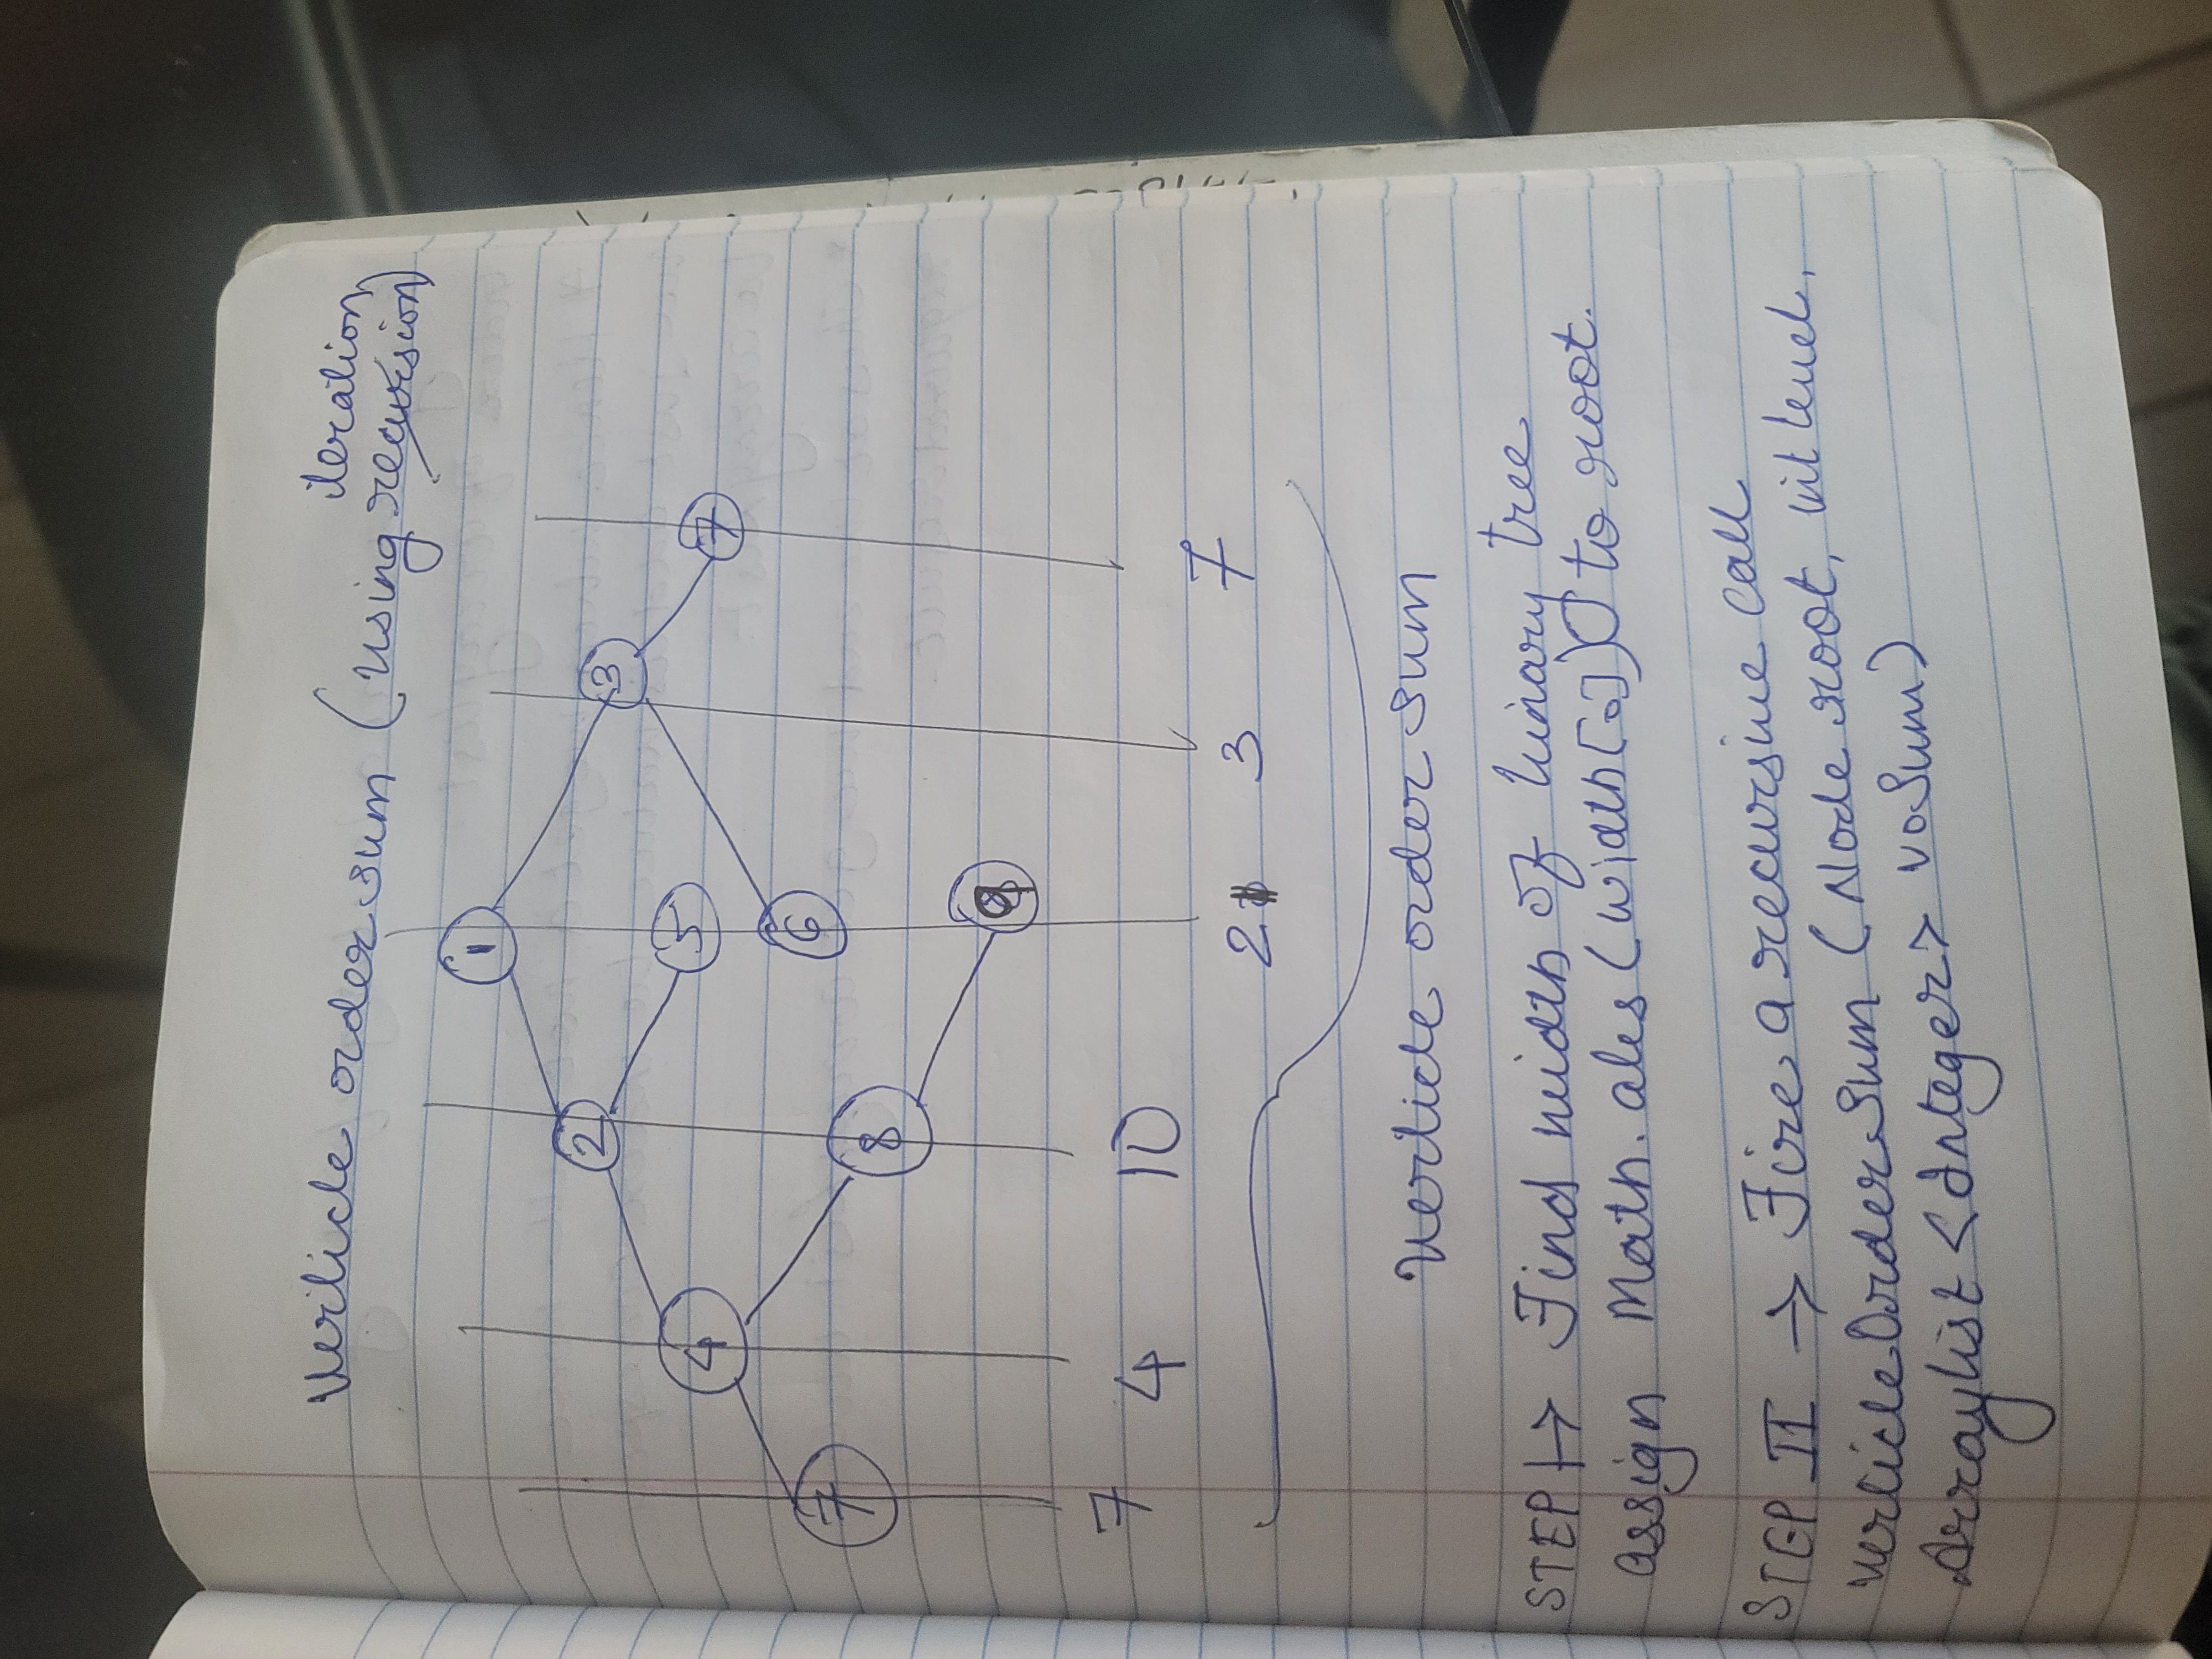 Verticle order sum (using recursion)
iteration
1
2
3
4
5
7
6
7
8
9
7
4
10
21
3
7
Verticle order sum
STEP I → Find width of binary tree
assign Math.abs(width[0]) to root.
STEP II → Fire a recursive call
verticleOrderSum (Node root, int level,
Arraylist <Integer> voSum)